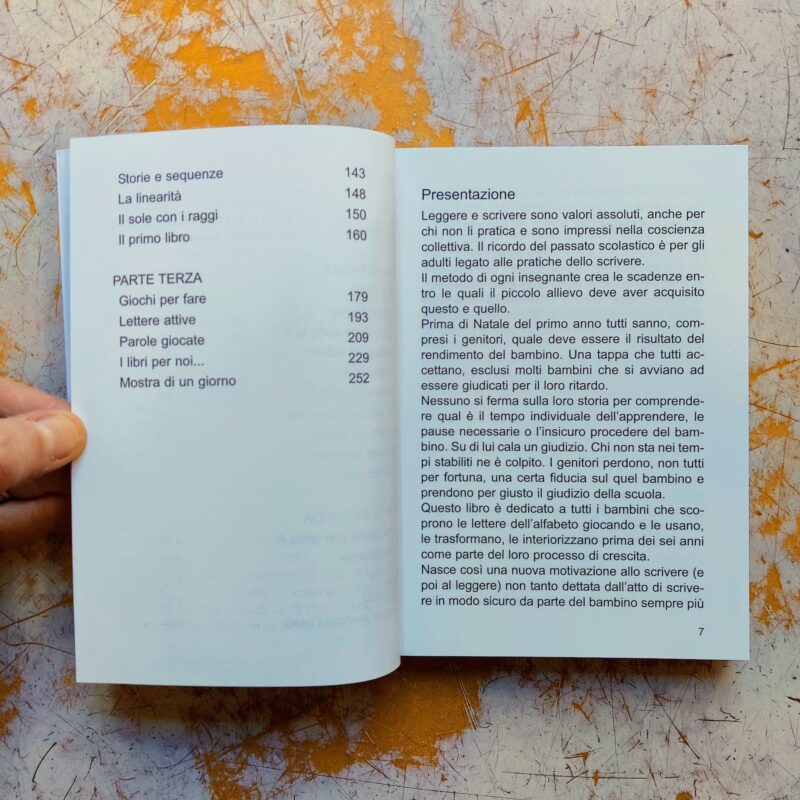 Storie e sequenze 143
La linearità 148
Il sole con i raggi 150
Il primo libro 160
PARTE TERZA
Giochi per fare 179
Lettere attive 193
Parole giocate 209
I libri per noi... 229
Mostra di un giorno 252
Presentazione
Leggere e scrivere sono valori assoluti, anche per
chi non li pratica e sono impressi nella coscienza
collettiva. Il ricordo del passato scolastico è per gli
adulti legato alle pratiche dello scrivere.
Il metodo di ogni insegnante crea le scadenze en-
tro le quali il piccolo allievo deve aver acquisito
questo e quello.
Prima di Natale del primo anno tutti sanno, com-
presi i genitori, quale deve essere il risultato del
rendimento del bambino. Una tappa che tutti ac-
cettano, esclusi molti bambini che si avviano ad
essere giudicati per il loro ritardo.
Nessuno si ferma sulla loro storia per comprende-
re qual è il tempo individuale dell'apprendere, le
pause necessarie o l'insicuro procedere del bam-
bino. Su di lui cala un giudizio. Chi non sta nei tem-
pi stabiliti ne è colpito. I genitori perdono, non tutti
per fortuna, una certa fiducia sul quel bambino e
prendono per giusto il giudizio della scuola.
Questo libro è dedicato a tutti i bambini che sco-
prono le lettere dell'alfabeto giocando e le usano,
le trasformano, le interiorizzano prima dei sei anni
come parte del loro processo di crescita.
Nasce così una nuova motivazione allo scrivere (e
poi al leggere) non tanto dettata dall'atto di scrive-
re in modo sicuro da parte del bambino sempre più
7